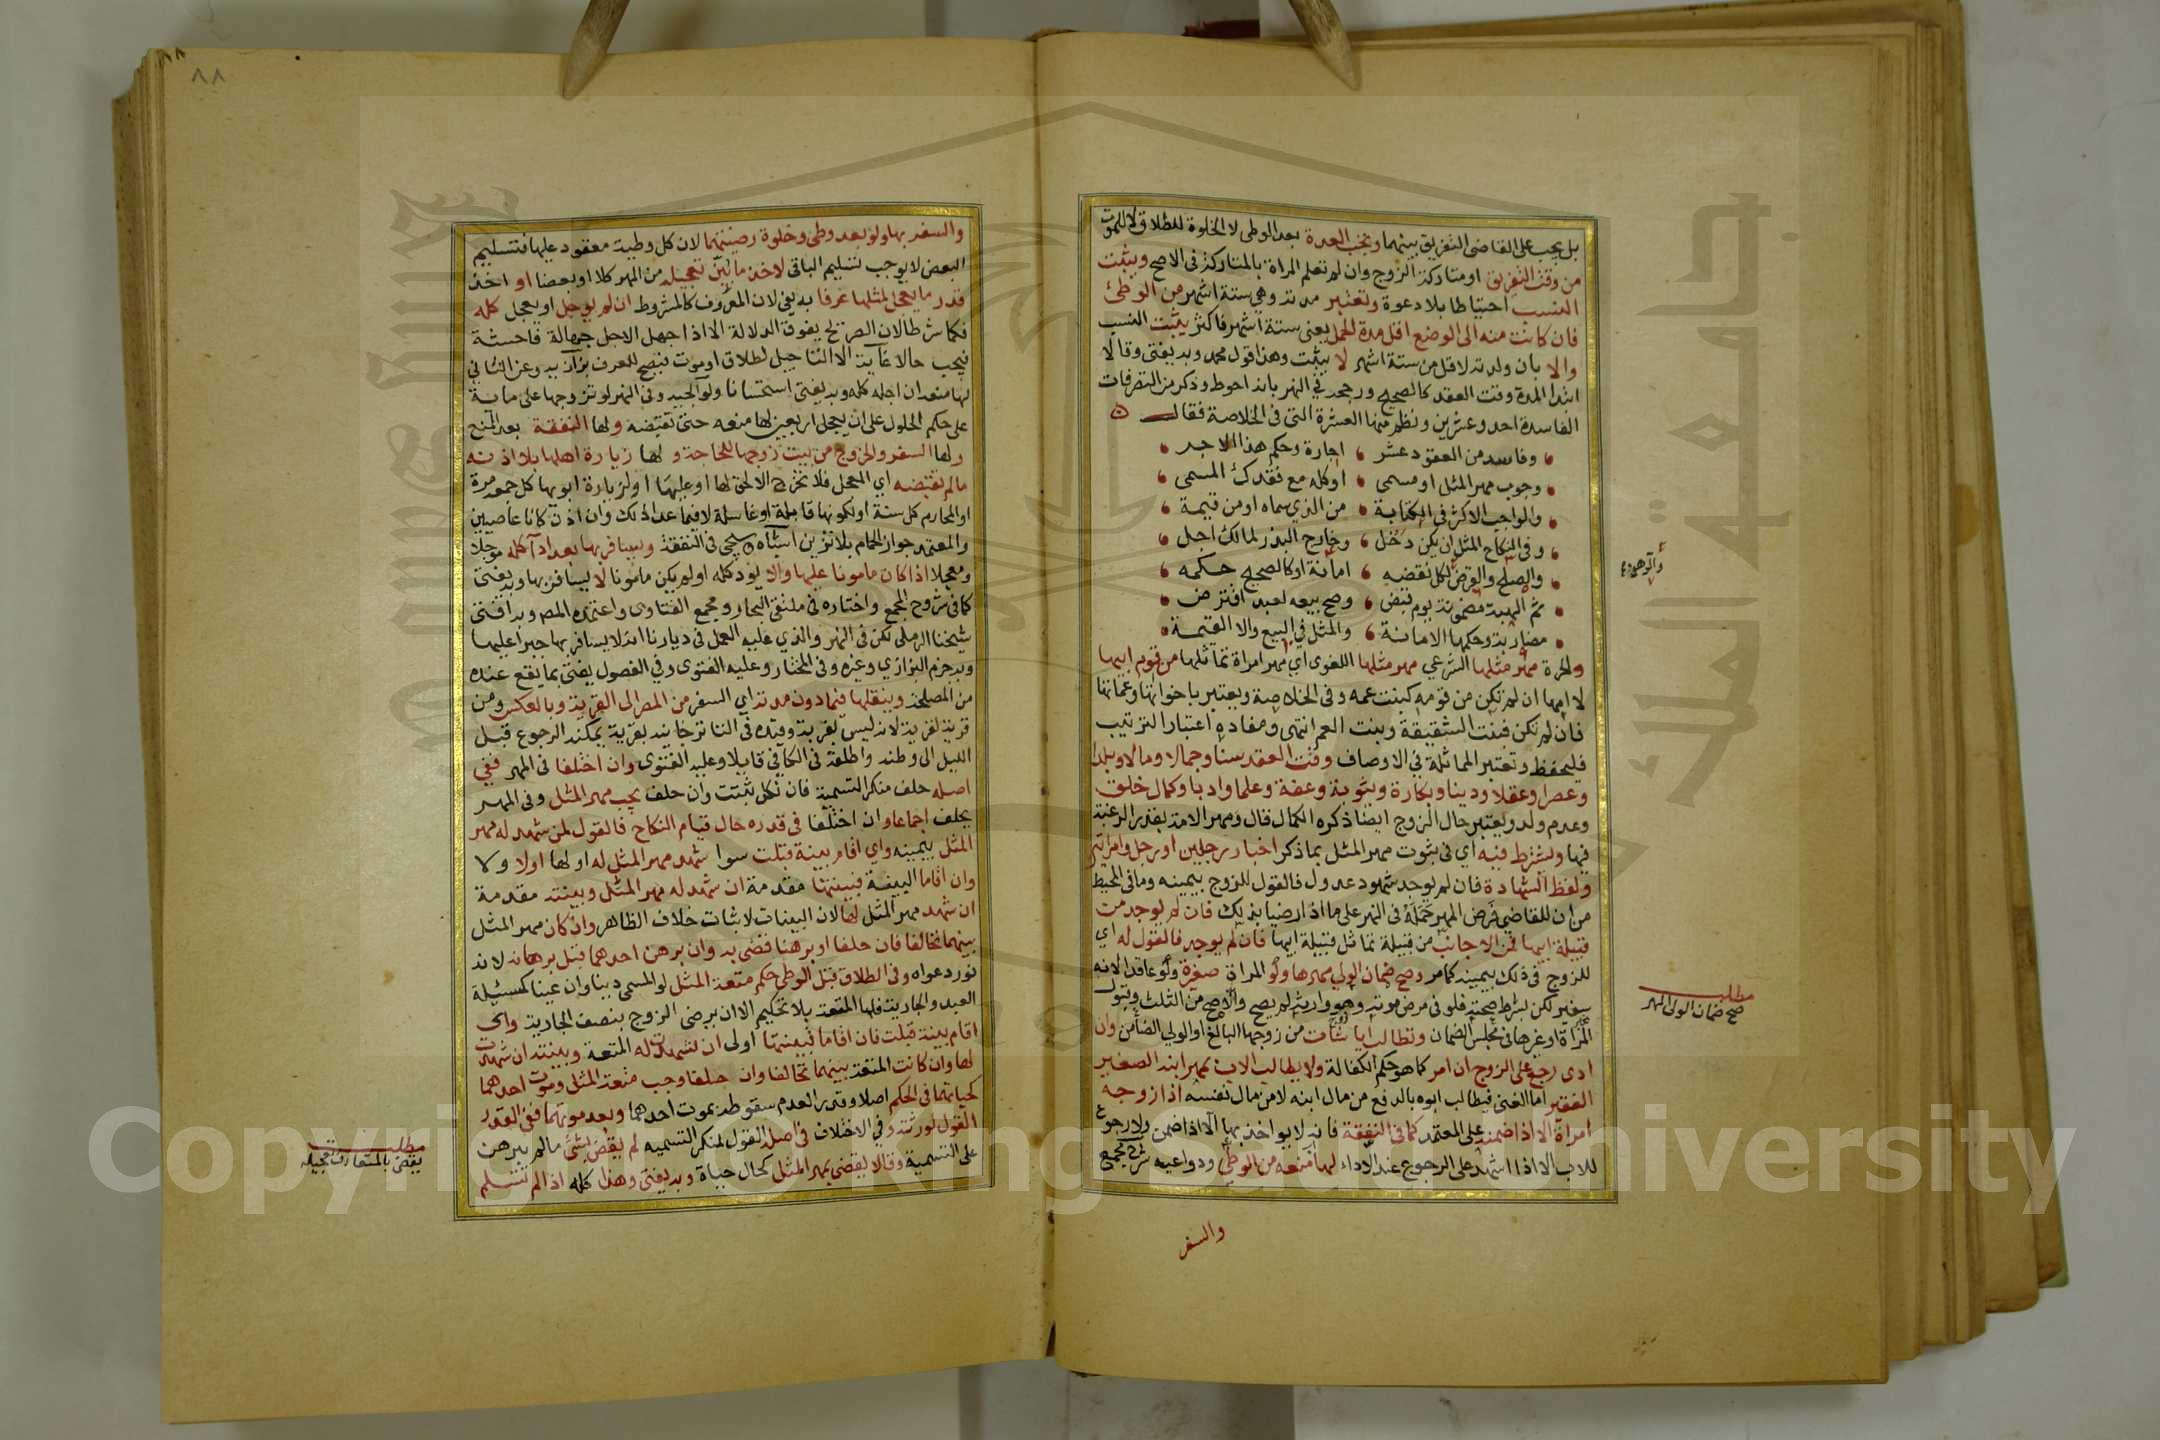 بل يجب على القاضي التفريق بينهما وتجب العدة بعد الوطى لا الخلوة للطلاق لا للموت
من وقت التفريق او متاركة الزوج وان لم تعلم المراة بالمتاركة في الاصح ويثبت
النسب احتياطا بلا دعوة وتعتبر مدته وهي ستة اشهر من الوطئ
فان كانت منه الى الوضع اقل مدة الحمل يعنى ستة اشهر فاكثر يثبت النسب
والا بان ولدته لاقل من ستة اشهر لا يثبت وهذا قول محمد وبه يفتى وقالا
ابتدا المدة وقت العقد كالصحيح ورجحه في النهر بانه احوط وذكر من التصرفات
الفاسدة احد وعشرين ونظم منها العشرة التى في الخلاصة فقال
وفاسد من العقود عشر اجارة وحكم هذا الاجر
وجوب مهر المثل او مسمى او كله مع فقدك المسمى
والواجب الاكثر في الكتابة من الذي سماه او من قيمة
وفي النكاح المثل ان يكن دخل وخارج البذر لمالك اجل
والصلح والرهن لكل نقضه امانة او كالصحيح حكمه
ثم الهبة مضمونة يوم قبض وصح بيعه لعبد اقترض
مضاربة وحكمها الامانة والمثل في البيع والا القيمة
والحرة مهر مثلها الشرعي مهر مثلها اللغوى اي مهر امراة تماثلها من قوم ابيها
لا امها ان لم تكن من قومه كبنت عمه وفي الخلاصة ويعتبر باخواتها وعماتها
فان لم تكن فبنت الشقيقة وبنت العم انتهى ومفاده اعتبار الترتيب
فليحفظ وتعتبر المماثلة في الاوصاف وقت العقد سنا وجمالا ومالا وبلدا
وعصرا وعقلا ودينا وبكارة وثيوبة وعفة وعلما وادبا وكمال خلق
وعدم ولد ويعتبر حال الزوج ايضا ذكره الكمال قال ومهر الامة بقدر الرغبة
فيها ويشترط فيه اي في ثبوت مهر المثل بما ذكر اخبار رجلين او رجل وامراتين
ولفظ الشهادة فان لم يوجد شهود عدول فالقول للزوج بيمينه وما في المحيط
من ان للقاضي فرض المهر حمله في النهر على ما اذا رضيا بذلك فان لم يوجد من
قبيلة ابيها فمن الاجانب من قبيلة تماثل قبيلة ابيها فان لم يوجد فالقول له اي
للزوج في ذلك بيمينه كما مر وصح ضمان الولي مهرها ولو المراة صغيرة ولو عاقدا لانه
سفير لكن بشرط صحته فلو في مرض موته وهو وارثه لم يصح والا صح من الثلث وقبول
المراة او غيرها في مجلس الضمان وتطالب ايا شاءت من زوجها البالغ او الولي الضامن وان
ادى رجع على الزوج ان امر كما هو حكم الكفالة ولا يطالب الاب بمهر ابنه الصغير
الفقير اما الغنى فيطالب ابوه بالدفع من مال ابنه لا من مال نفسه اذا زوجه
امراة الا اذا ضمنه على المعتمد كما في النفقة فانه لا يواخذ بها الا اذا ضمن ولا رجوع
للاب الا اذا اشهد على الرجوع عند الاداء لها منعه من الوطئ ودواعيه شرح مجمع
والسفر
مطلب
صح ضمان الولي المهر
٨٨
والسفر بها ولو بعد وطئ وخلوة رضيتهما لان كل وطية معقود عليها فتسليم
البعض لا يوجب تسليم الباقى لاخذ ما بين تعجيله من المهر كلا او بعضا او اخذ
قدر ما يعجل لمثلها عرفا به يفتى لان المعروف كالمشروط ان لم يوجل او يعجل كله
فكما شرطا لان الصريح يفوق الدلالة الا اذا جهل الاجل جهالة فاحشة
فيجب حالا غاية الا التاجيل لطلاق او موت فيصح للعرف بزازيه وعن الثاني
لها منعه ان اجله كله وبه يفتى استحسانا ولوالجيه وفي النهر لو تزوجها على ماية
على حكم الحلول على ان يعجل اربعين لها منعه حتى تقبضه ولها النفقة بعد المنع
ولها السفر والخروج من بيت زوجها للحاجة ولها زيارة اهلها بلا اذنه
ما لم تقبضه اي المعجل فلا تخرج الا لحق لها او عليها او لزيارة ابويها كل جمعه مرة
او المحارم كل سنة او لكونها قابلة او غاسلة لا فيما عدا ذلك وان اذن كانا عاصيين
والمعتمد جواز الحمام بلا تزين اشباه وسيجي في النفقة ويسافر بها بعد اداء كله موجلا
ومعجلا اذا كان مامونا عليها والا يود كله او لم يكن مامونا لا يسافر بها وبه يفتى
كما في شروح المجمع واختاره في ملتقى البحار ومجمع الفتاوى واعتمده المص وبه افتى
شيخنا الرملي لكن في النهر والذي عليه العمل في ديارنا انه لا يسافر بها جبرا عليها
وبه جزم البزازي وغيره وفي المختار وعليه الفتوى وفي الفصول يفتى بما يقع عنده
من المصلحة وينقلها فيما دون مدته اي السفر من المصر الى القرية وبالعكس ومن
قرية لقرية لانه ليس بغربة وقيده في التاترخانيه بقرية يمكنه الرجوع قبل
الليل الى وطنه واطلقه في الكافي قايلا وعليه الفتوى وان اختلفا في المهر ففي
اصله حلف منكر التسمية فان نكل ثبتت وان حلف يجب مهر المثل وفي المهر
يحلف اجماعا وان اختلفا في قدره حال قيام النكاح فالقول لمن شهد له مهر
المثل بيمينه واي اقام بينة قبلت سوا شهد مهر المثل له او لها اولا ولا
وان اقاما البينة فبينتها مقدمة ان شهد له مهر المثل وبينته مقدمة
ان شهد مهر المثل لها لان البينات لاثبات خلاف الظاهر وان كان مهر المثل
بينهما تحالفا فان حلفا او برهنا قضى به وان برهن احدهما قبل برهانه لانه
نور دعواه وفي الطلاق قبل الوطى حكم متعة المثل لو المسمى دينا وان عينا كمسئلة
العبد والجارية فلها المتعة بلا تحكيم الا ان يرضى الزوج بنصف الجارية واي
اقام بينة قبلت فان اقاما فبينتها اولى ان شهدت له المتعة وبينته ان شهدت
لها وان كانت المتعة بينهما تحالفا وان حلفا وجب متعة المثل وموت احدهما
كحياتهما في الحكم اصلا وقدرا لعدم سقوطه بموت احدهما وبعد موتهما ففي القدر
القول لورثته وفي الاختلاف في اصله القول لمنكر التسميه لم يقض بشئ ما لم يبرهن
على التسمية وقالا يقضى بمهر المثل كحال حياة وبه يفتى وهذا كله اذا لم تتسلم
مطلب
يقضى بالمتعارف تعجيله
Copyright © King Saud University
جامعة الملك سعود